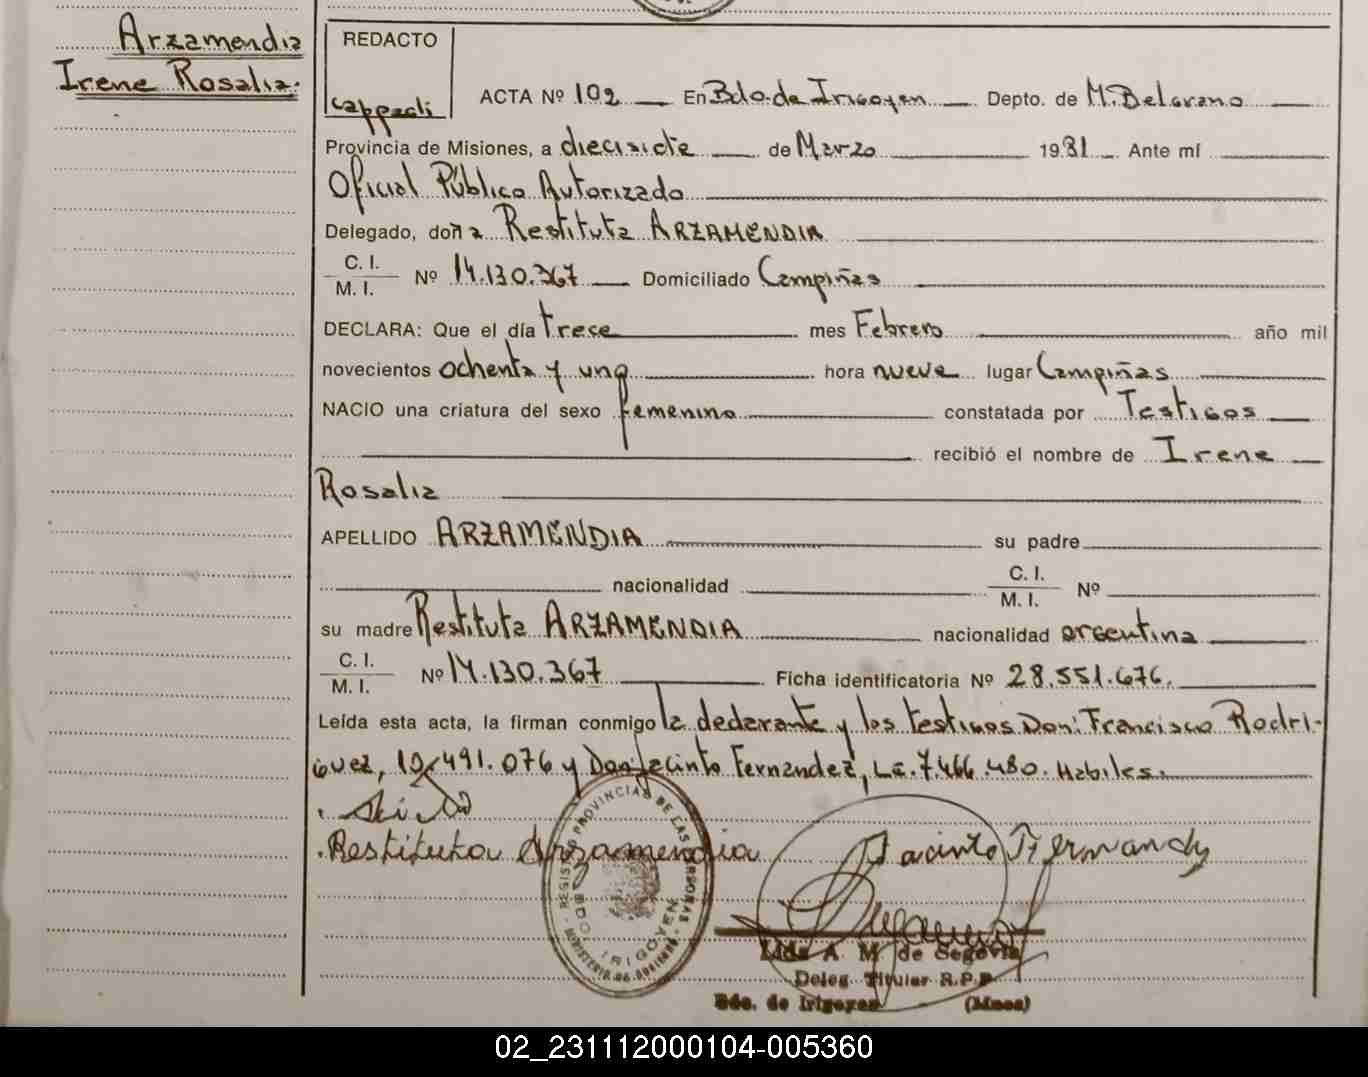 Arzamendia
Irene Rosalia.
REDACTO
Cappeoli
ACTA Nº 102 En Bdo. de Irigoyen Depto. de M. Belgrano
Provincia de Misiones, a diecisiete de Marzo 1981 Ante mí
Oficial Público Autorizado
Delegado, doña Restituta ARZAMENDIA
C. I.
M. I.
Nº 14.130.367 Domiciliado Campiñas
DECLARA: Que el día trece mes Febrero año mil
novecientos ochenta y uno hora nueve lugar Campiñas
NACIO una criatura del sexo femenino constatada por Testigos
recibió el nombre de Irene
Rosalia
APELLIDO ARZAMENDIA su padre
nacionalidad C. I.
M. I. Nº
su madre Restituta ARZAMENDIA nacionalidad argentina
C. I.
M. I.
Nº 14.130.367 Ficha identificatoria Nº 28.551.676.
Leída esta acta, la firman conmigo la declarante y los testigos Don: Francisco Rodri-
guez, 10.491.076 y Don Jacinto Fernandez, L.E. 7.466.480. Habiles.
Restituta Arzamendia
Jacinto Fernandz
REGISTRO PROVINCIAL DE LAS PERSONAS
BDO. IRIGOYEN
Lida A M de Segovia
Deleg Titular R.P.P
Bdo. de Irigoyen (Mnes)
02_231112000104-005360